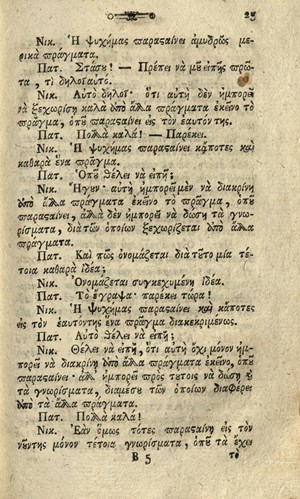 25
Νικ. Ἡ ψυχήμας παρασαίνει ἀμυδρῶς με-
ρικὰ πράγματα.
Πατ. Στάσυ! — Πρέπει νὰ μȣ̃ εἰπῇς πρῶ-
τα, τί δηλοῖ αὐτό.
Νικ. Αὐτὸ δηλοῖ· ὅτι αὐτὴ δὲν ἠμπορεῖ
νὰ ξεχωρίσῃ καλὰ ἀπὸ ἄλλα πράγματα ἐκεῖνο τὸ
πρᾶγμα, ὁπȣ̃ παρασαίνει εἰς τὸν ἑαυτόν της.
Πατ. Πολλὰ καλά! — Παρέκει.
Νικ. Ἡ ψυχήμας παρασαίνει κᾄποτες καὶ
καθαρὰ ἕνα πρᾶγμα.
Πατ. Ὁπȣ̃ θέλει νὰ εἰπῇ;
Νικ. Ἤγȣν· αὐτὴ ἠμπορεῖ μὲν νὰ διακρίνῃ
ἀπὸ ἄλλα πράγματα ἐκεῖνο τὸ πρᾶγμα, ὁπȣ̃
παρασαίνει, ἀλλὰ δὲν ἠμπορεῖ νὰ δώσῃ τὰ γνω-
ρίσματα, διὰ τῶν ὁποίων ξεχωρίζεται ἀπὸ ἄλλα
πράγματα.
Πατ. Καὶ πῶς ὀνομάζεται διὰ τȣ̃το μία τέ-
τοια καθαρὰ ἰδέα;
Νικ. Ὀνομάζεται συγκεχυμένη ἰδέα.
Πατ. Τὸ ἔγραψα· παρέκει τώρα!
Νικ. Ἡ ψυχήμας παρασαίνει καὶ κᾄποτες
εἰς τὸν ἑαυτόντης ἕνα πρᾶγμα διακεκριμένως.
Πατ. Αὐτὸ θέλει νὰ εἰπῇ;
Νικ. Θέλει νὰ εἰπῇ, ὅτι αὐτὴ ὄχι μόνον ἠμπο-
ρεῖ νὰ διακρίνῃ ἀπὸ ἄλλα πράγματα ἐκεῖνο, ὁπȣ̃
παρασαίνει· ἀλλ' ἠμπορεῖ πρὸς τȣ́τοις νὰ δώσῃ
τὰ γνωρίσματα, διαμέσȣ τῶν ὁποίων διαφέρει
ἀπὸ τὰ ἄλλα πράγματα.
Πατ. Πολλὰ καλά!
Νικ. Ἐὰν ὅμως τότες παρασαίνῃ εἰς τὸν
νȣ̃ντης μόνον τέτοια γνωρίσματα, ὁπȣ̃ τὰ ἔχει
B 5 τὸ